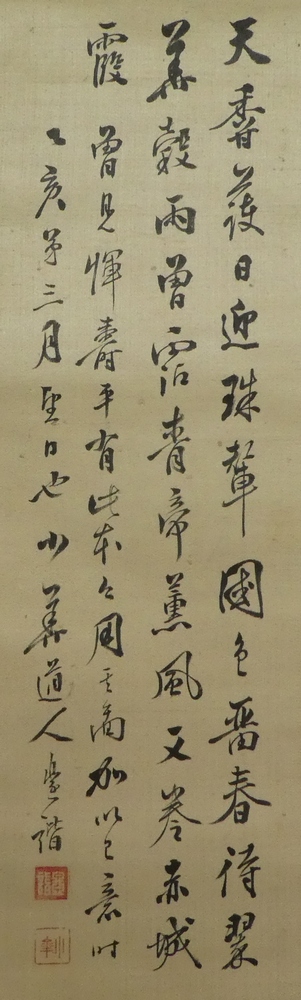 天香護日迎珠輦國色留春待翠
華穀雨曾霑青帝薰風又卷赤城
霞 曾見惲壽平有此本今用其啚加以己意時
乙亥第三月望日也少華道人